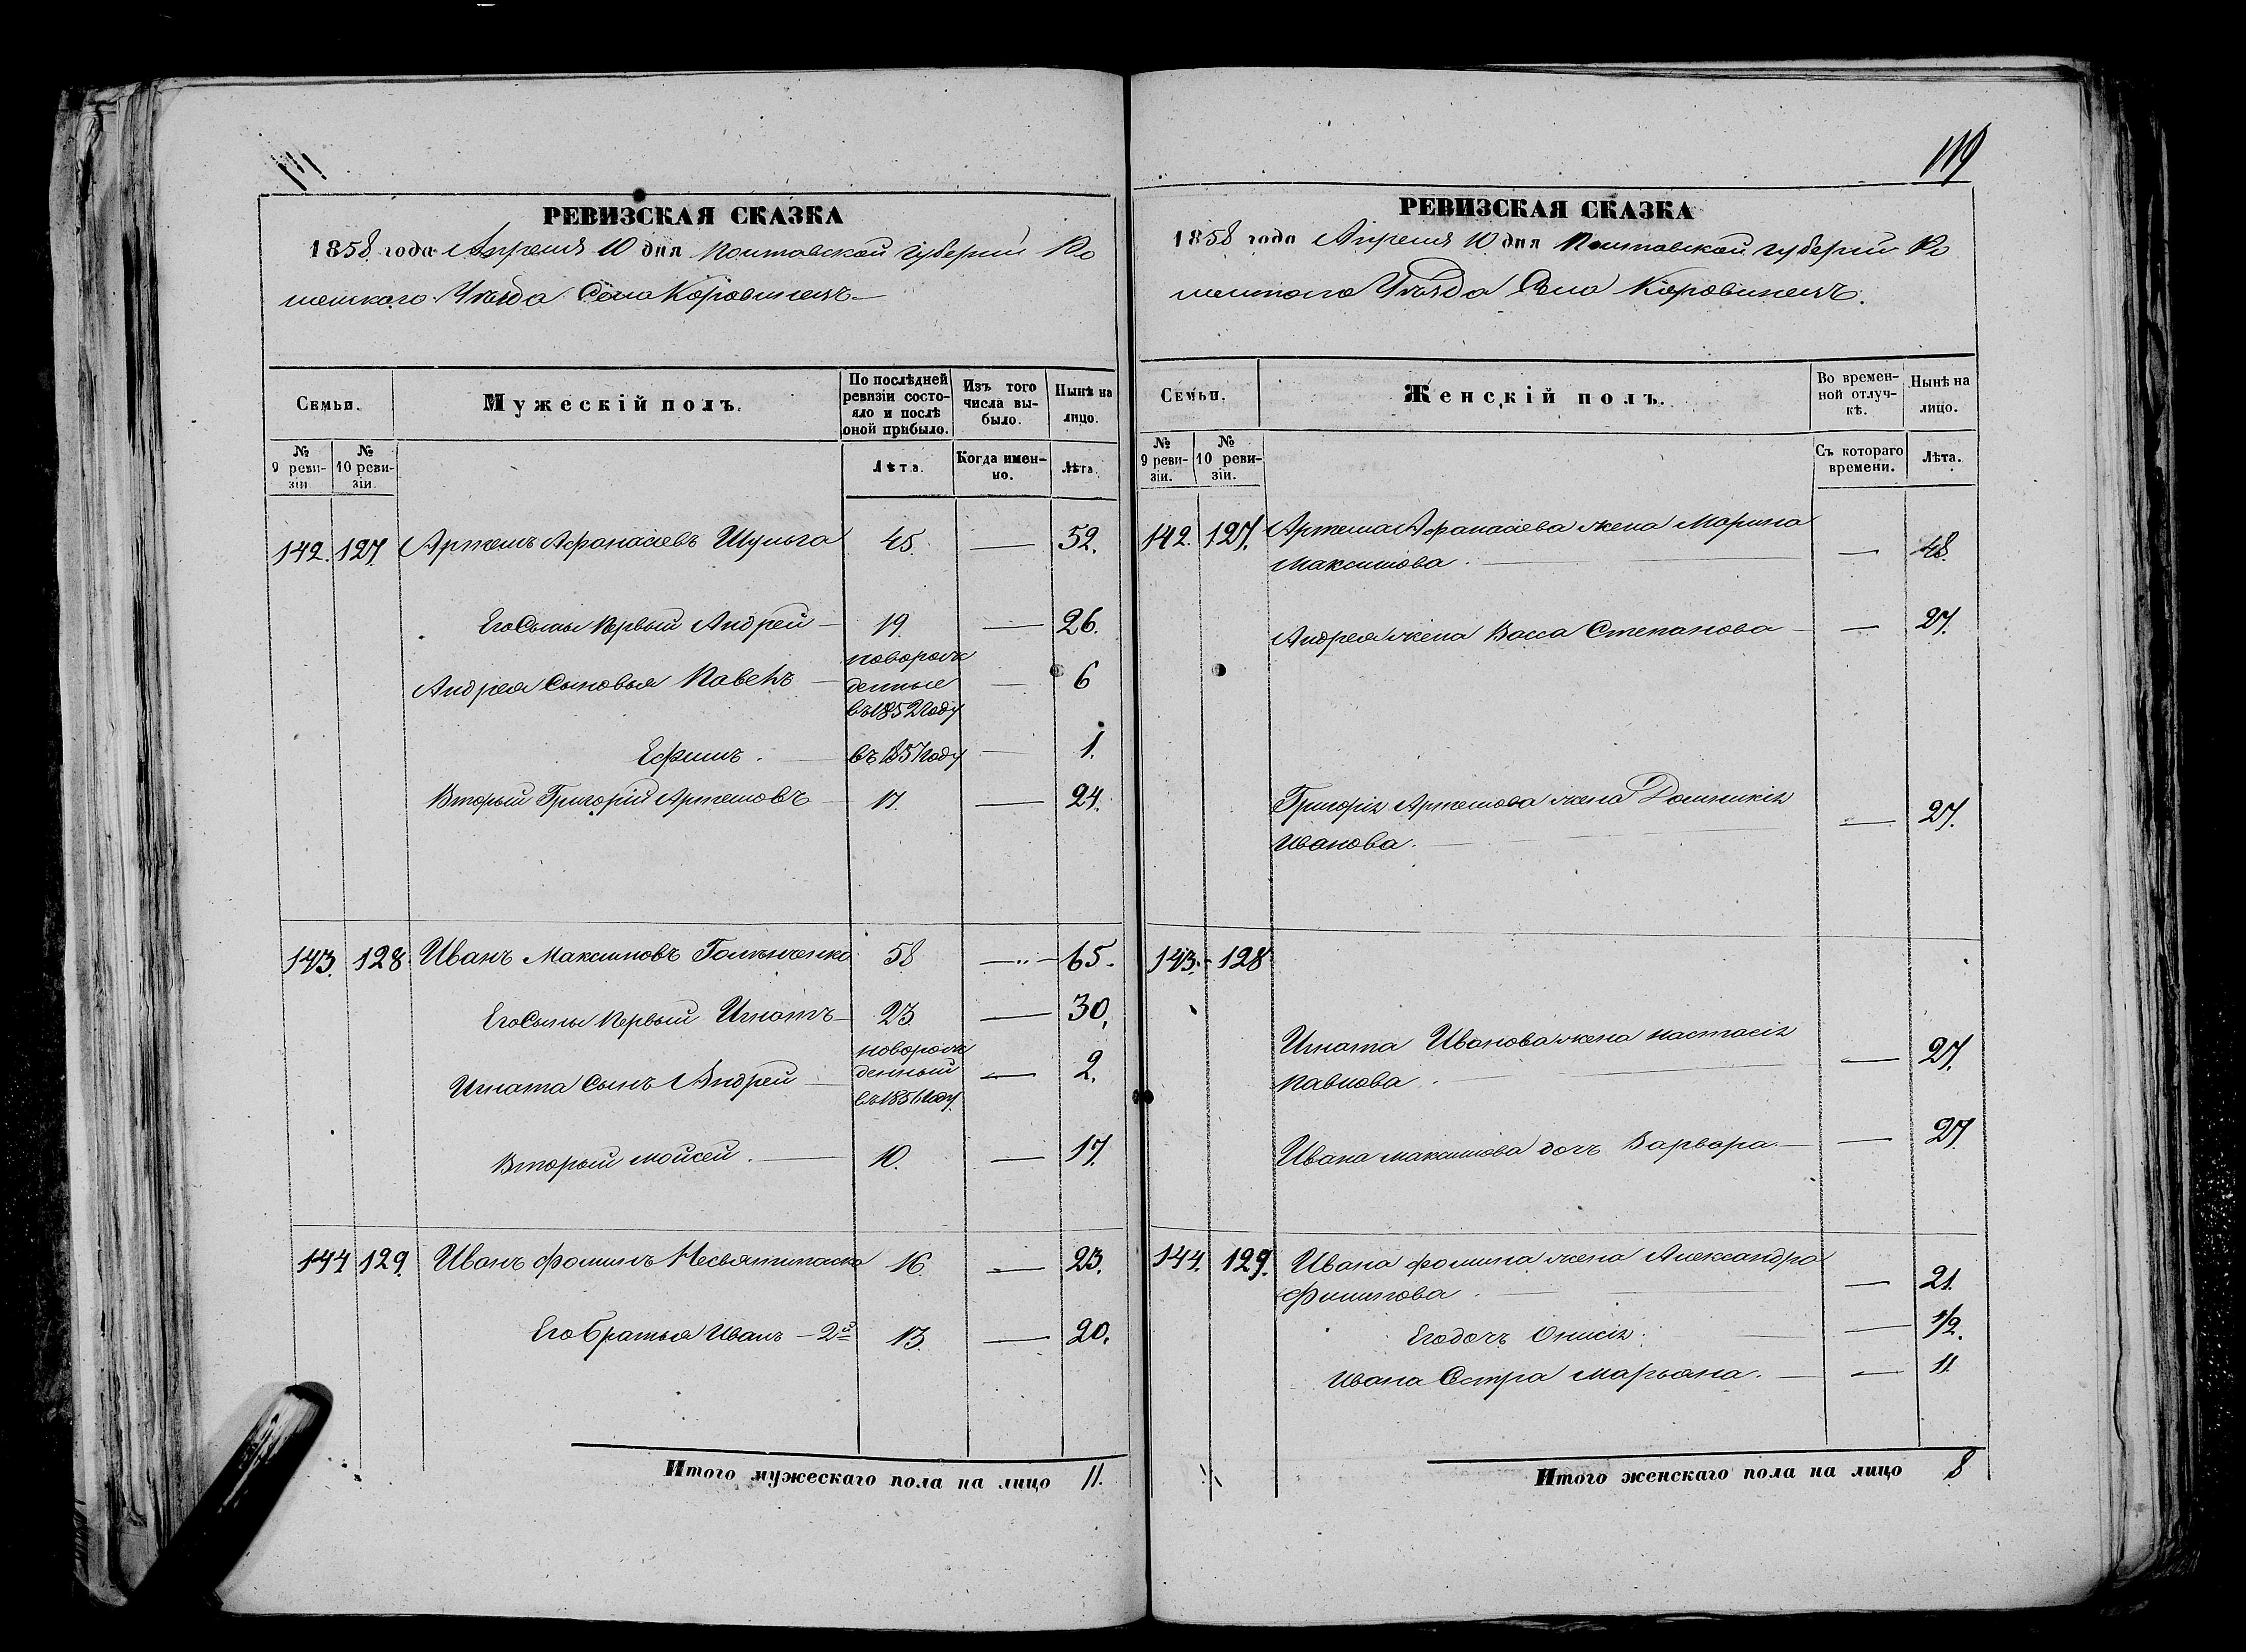 РЕВИЗСКАЯ СКАЗКА
1858 года Апреля 10 дня Полтавской губернiи Ро
менскаго Уѣзда Село Коровинець
Семьи.
Мужескій полъ.
По послѣдней ревизіи состояло и послѣ оной прибыло.
Изъ того числа выбыло.
Нынѣ на лицо.
№ 9 ревизіи
№ 10 ревизіи.
Лѣта.
Когда именно.
Лѣта.
142. 127. Артемъ Афанасіевъ Шульга 45. — 52.
Его Сыны Первый Андрей — 19. — 26.
Андрея Сыновья Павелъ — новорожденные въ 1852 году — 6
Ефимъ. — въ 1857 году — 1.
Вторый Григорій Артемовъ — 17. — 24.
143. 128. Иванъ Максимовъ 58 — 65.
Его Сыны Первый Игнатъ — 23 — 30,
Игната Сынъ Андрей — новорожденный въ 1856 году — 2.
Вторый Мойсей. — 10. — 17.
144 129. Иванъ Фоминъ 16. — 23.
Его братья Иванъ — 2й 13. — 20.
Итого мужескаго пола на лицо 11.
119
РЕВИЗСКАЯ СКАЗКА
1858 года Апреля 10 дня Полтавской губернiи Ро
менскаго Уѣзда Село Коровинець.
Семьи.
Женскій полъ.
Во временной отлучкѣ.
Нынѣ на лицо.
№ 9 ревизіи.
№ 10 ревизіи.
Съ котораго времени.
Лѣта.
142. 127. Артема Афанасіева жена Марина
Максимова. — — 48.
Андрея жена Васса Степанова — — 27.
Григорія Артемова жена Домникія
Иванова. — — 27.
143. 128
Игната Иванова жена Настасія
Павлова. — — 27.
Ивана Максимова дочь Варвара. — — 27.
144. 129. Ивана Фомина жена Александра
Филипова. — — 21.
Его дочь Онисія. — — 1/2.
Ивана Сестра Марьяна. — — 11.
Итого женскаго пола на лицо 8